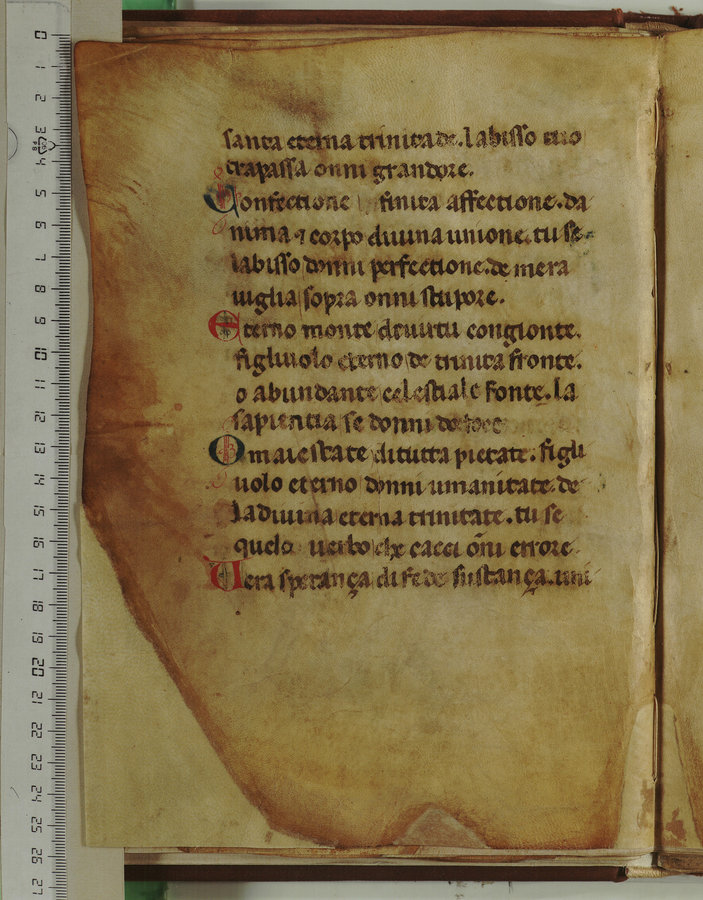 santa eterna trinitade. labisso tuo
trapassa onni grandore.
Confectione finita affectione. da
nima ⁊ corpo diuina unione. tu se
labisso donni perfectione. de mera
uiglia sopra onni stupore.
Eterno monte deuirtu congionte.
figliuolo eterno de trinita fronte.
o abundante celestiale fonte. la
sapientia se donni
O maiestate di tutta pietate. figli
uolo eterno donni umanitate. de
la diuina eterna trinitate. tu se
quelo uerbo che cacci oñi errore
Uera sperança di fede sustança. uni
0 1 2 3 4 5 6 7 8 9 10 11 12 13 14 15 16 17 18 19 20 21 22 23 24 25 26 27